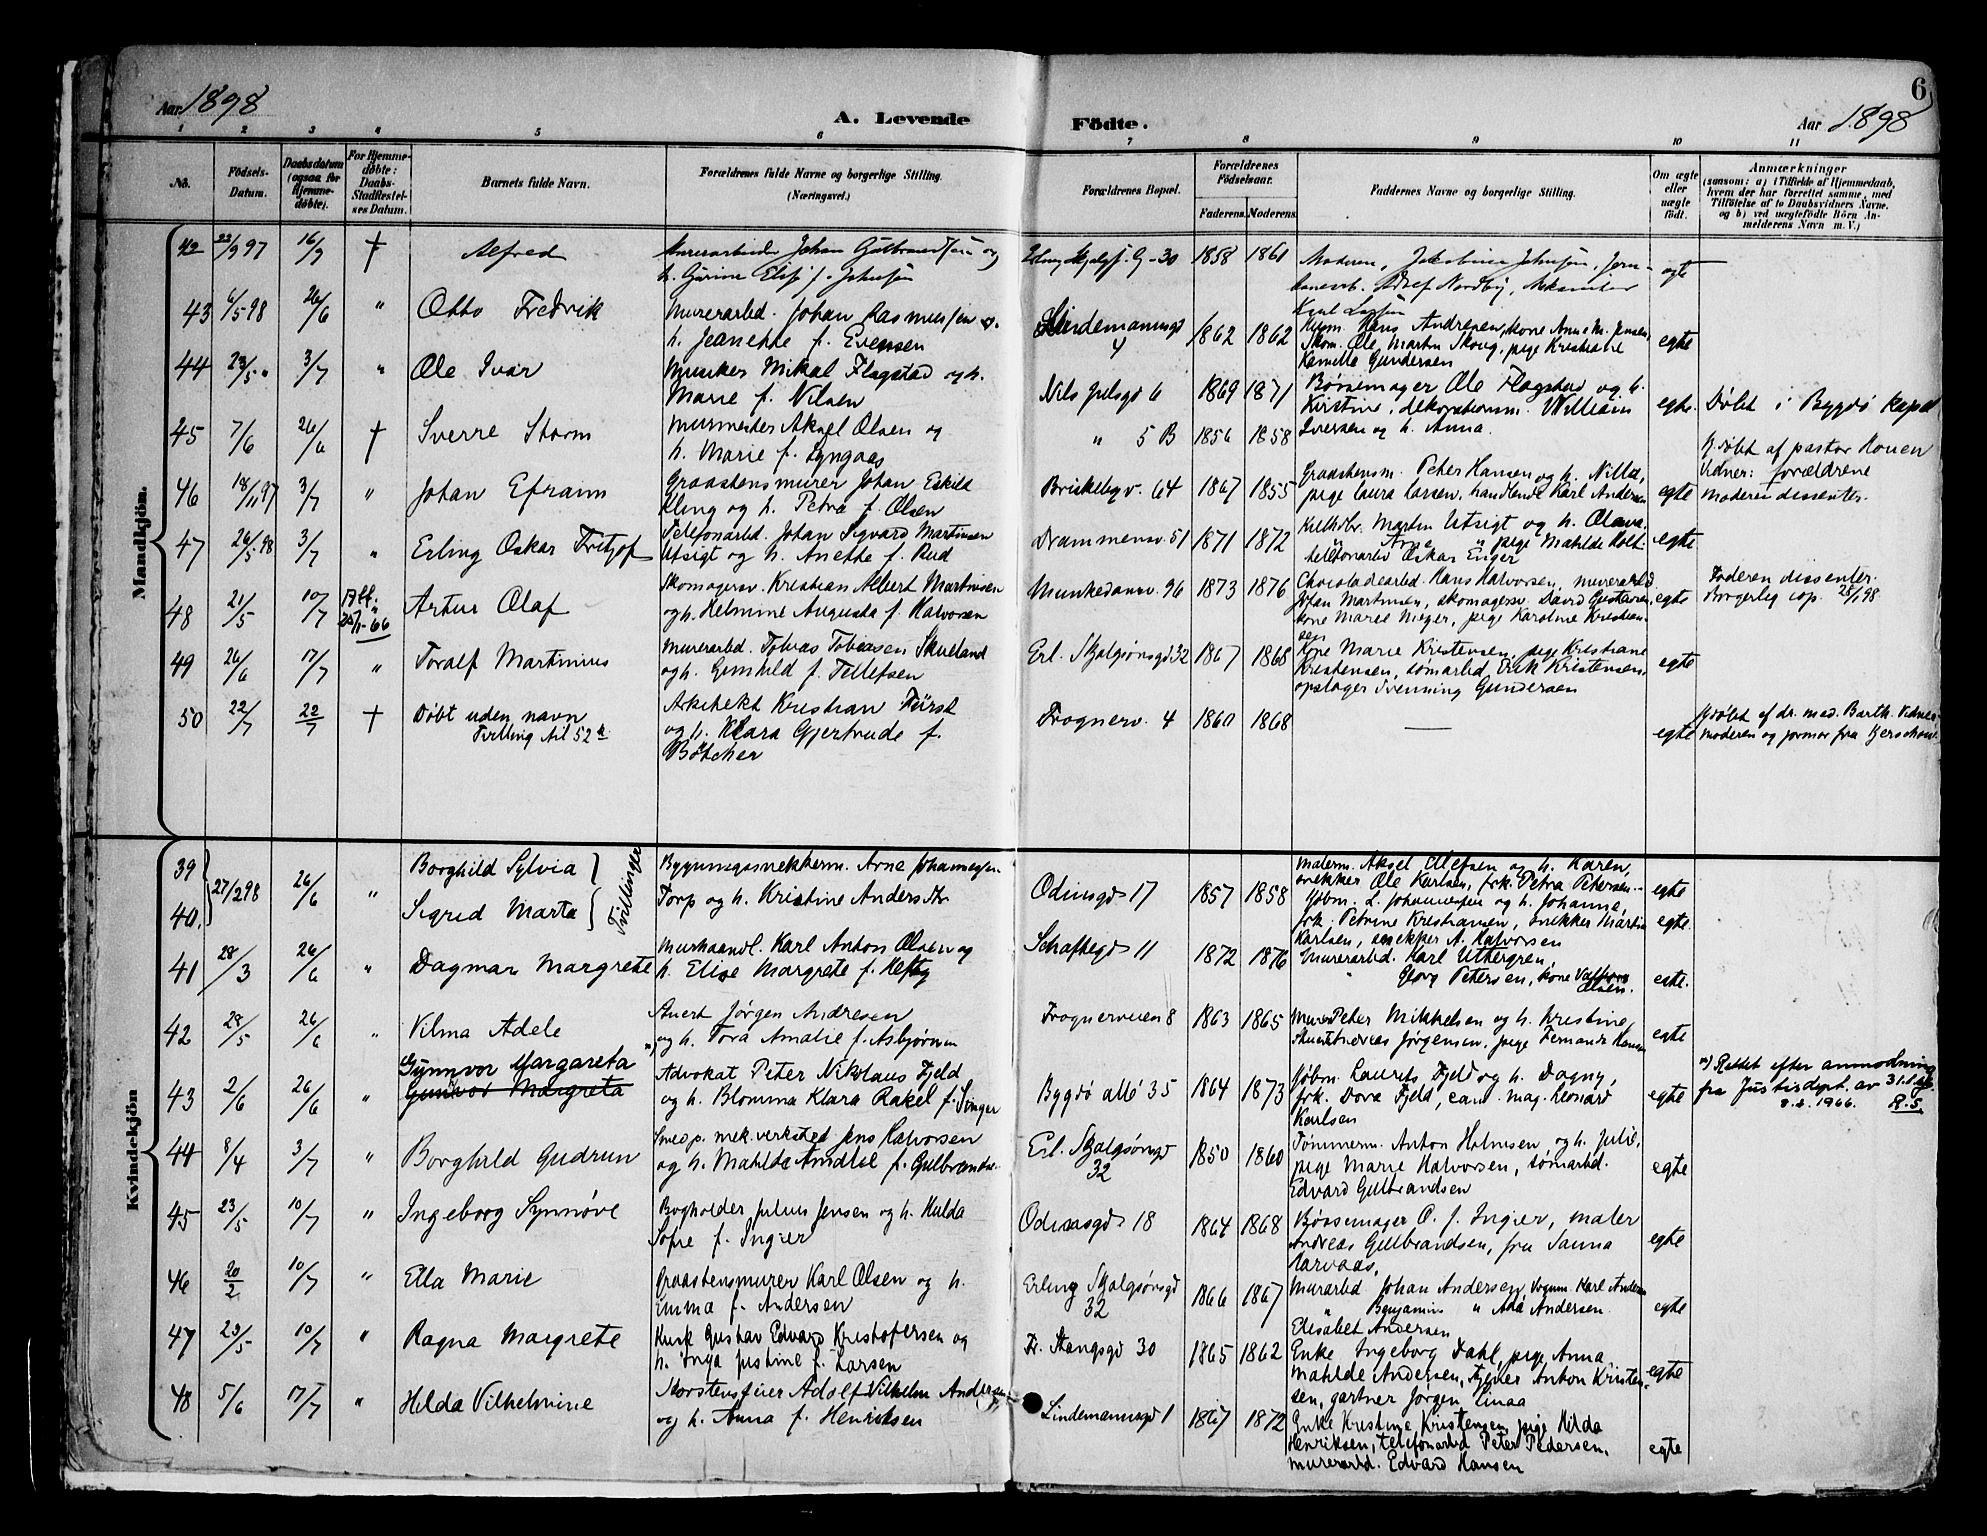 Aar 1898
A. Levende Födte.
Aar 1898
6
1 2 3 4 5 6 7 8 9 10 11
No. Födsels-Datum. Daabsdatum (ogsaa for Hjemme-döbte). For Hjemme-döbte: Daabs-Stadfæstel-ses Datum. Barnets fulde Navn. Forældrenes fulde Navne og borgerlige Stilling. (Næringsvei.) Forældrenes Bopæl. Forældrenes Födselsaar. Faderens. Moderens. Faddernes Navne og borgerlige Stilling. Om ægte eller uægte födt. Anmærkninger (saasom: a) i Tilfælde af Hjemmedaab, hvem der har forrettet samme, med Tilföielse af to Daabsvidners Navne, og b) ved uægtefödte Börn An-melderens Navn m. V.)
Mandkjön.
42 22/9 97 16/9 † Alfred
Murerarbeider Johan Gulbrandsen og
1858 1861 egte
43 6/5 98 26/6 " Otto Fredrik
Murerarbd. Johan Rasmussen o.
h. Jeanette f. Evensen
Lindemannsgd 4 1862 1862
Hans Andresen, kone Anne M. Jensen,
Skom. Ole Martin Skoug, pige Kristiane
Kamilla Gundersen
egte
44 23/5 " 3/7 " Ole Ivar
Musiker Mikal Flagstad og h.
Marie f. Nilsen
Nils Juelsgd 6 1869 1871
Børsemager Ole Flagstad og h.
Kristine, dekorationsm. William
Iversen og h. Anna.
egte. Døbt i Bygdø kapel
45 7/6 26/6 † Sverre Storm
Murmester Aksel Olsen og
h. Marie f. Lyngaas
" 5 B 1856 1858
Hj.døbt af pastor Houen
Vidner: forældrene
46 18/11 97 3/7 " Johan Efraim
Graastensmurer Johan Eskild
Kling og h. Petra f. Olsen
Briskebyv. 64 1867 1855
Graastensm. Peter Hansen og h. Nilla,
pige Laura Larsen, handlende Karl Andersen
egte moderen dissenter.
47 26/5 98 3/7 " Erling Oskar Fritjof
Telefonarbd. Johan Sigvard Martinsen
Utsigt og h. Anette f. Rud
Drammensv. 51 1871 1872
Martin Utsigt og h. Olava
" Arne " pige Matilde Holt
telefonarbd Oskar Enger
egte
48 21/5 10/7 Artur Olaf
Skomagersv. Kristian Albert Martinsen
og h. Helmine Augusta f. Halvorsen
Munkedamsv. 96 1873 1876
Chocoladearbd. Hans Halvorsen, murerarbd
Johan Martinsen, skomagersv. David Gustavsen,
kone Marie Meyer, pige Karoline Kristian-
sen
egte
Faderen dissenter.
Borgerlig cop. 28/1 98
49 26/6 17/7 " Toralf Martinius
Murerarbd. Tobias Tobiassen Skueland
og h. Gunhild f. Tellefsen
Erl. Skjalgsønsgd 32 1867 1868
Kone Marie Kristensen, pige Kristiane
Kristensen, tømarbd. Erik Kristensen,
opslager Svenning Gundersen
egte
50 22/7 22/7 † Døbt uden navn
Tvilling til 52
Arkitekt Kristian Fürst
og h. Klara Gjertrude f.
Bötcher
Frognerv. 4 1860 1868 —
egte
Hj.døbt af dr. med. Barth. Vidner:
moderen og jormor fru Gerschow
Kvindekjön
39 40. 27/2 98 26/6 " Borghild Sylvia
Sigrid Marta
Tvillinger
Bygningssnekkerm. Arne Johannessen
Torp og h. Kristine Andersdtr
Odinsgd 17 1857 1858
Malerm. Aksel Olefsen og h. Karen,
snekker Ole Karlsen, frk. Petra Petersen.
Gjbm. L. Johannessen og h. Johanne,
frk. Petrine Kristiansen, snekker Martin
Karlsen, snekker A. Halvorsen
egte
egte.
41 28/3 26/6 " Dagmar Margrete
Murhaandl. Karl Anton Olsen og
h. Elise Margrete f. Hefty
Schaftegd 11 1872 1876
Murerarbd. Karl Uttergren,
" Georg Petersen, kone Valborg
Olsen.
egte.
42 28/5 26/6 " Vilma Adele
Stuert Jørgen Andresen
og h. Tora Amalie f. Asbjørnsen
Frognerveien 8 1863 1865
Murer Peter Mikkelsen og h. Kristine,
Stuert Andreas Jørgensen, pige Fernanda Hansen
egte
43 2/6 26/6 " Gynnvor Margareta
Gunvor Margreta
Advokat Peter Nikolaus Fjeld
og h. Blomma Klara Rakel f. Singer
Bygdø allé 35 1864 1873
Gjbm. Laurits Fjeld og h. Dagny,
frk. Dora Fjeld, cand. mag. Leonard
Karlsen
egte
x) Rettet efter anmodning
fra Justisdept. av 31.1.66
8.2.1966. R.S.
44 8/4 3/7 " Borghild Gudrun
Smed p. mek. verksted Jens Halvorsen
og h. Mathilde Amalie f. Gulbrandsen
Erl. Skjalgsønsgd 32 1850 1860
Tømmerm. Anton Holmsen og h. Julie,
pige Marie Halvorsen, tømarbd.
Edvard Gulbrandsen
egte
45 23/5 10/7 " Ingeborg Synnøve
Bogholder Julius Jensen og h. Hulda
Sofie f. Ingier
Odinsgd 18 1864 1868
Børsemager O. J. Ingier, maler
Andreas Gulbrandsen, fru Sanna
Aarvaas,
egte
46 20/2 10/7 " Ella Marie
Graastensmurer Karl Olsen og h.
Emma f. Andersen
Erling Skjalgsønsgd 32 1866 1867
Murarbd Johan Andersen, Vognm. Karl Andersen
" Benjamin " Ada Andersen.
Elisabet Andersen
egte
47 23/5 10/7 " Ragna Margrete
Kusk Gustav Edvard Kristofersen og
h. Inga Justine f. Larsen
Fr. Stangsgd 30 1865 1862
Enke Ingeborg Dahl, pige Anna
Mathilde Andersen, Anton Kristen-
sen, gartner Jørgen Linaa
egte
48 5/6 17/7 " Hilda Vilhelmine
Skorstensfeier Adolf Vilhelm Andersen
og h. Anna f. Henriksen
Lindemannsgd 1 1867 1872
Enke Kristine Kristensen, pige Hilda
Henriksen, telefonarbd Peter Pedersen,
murerarbd. Edvard Hansen
egte